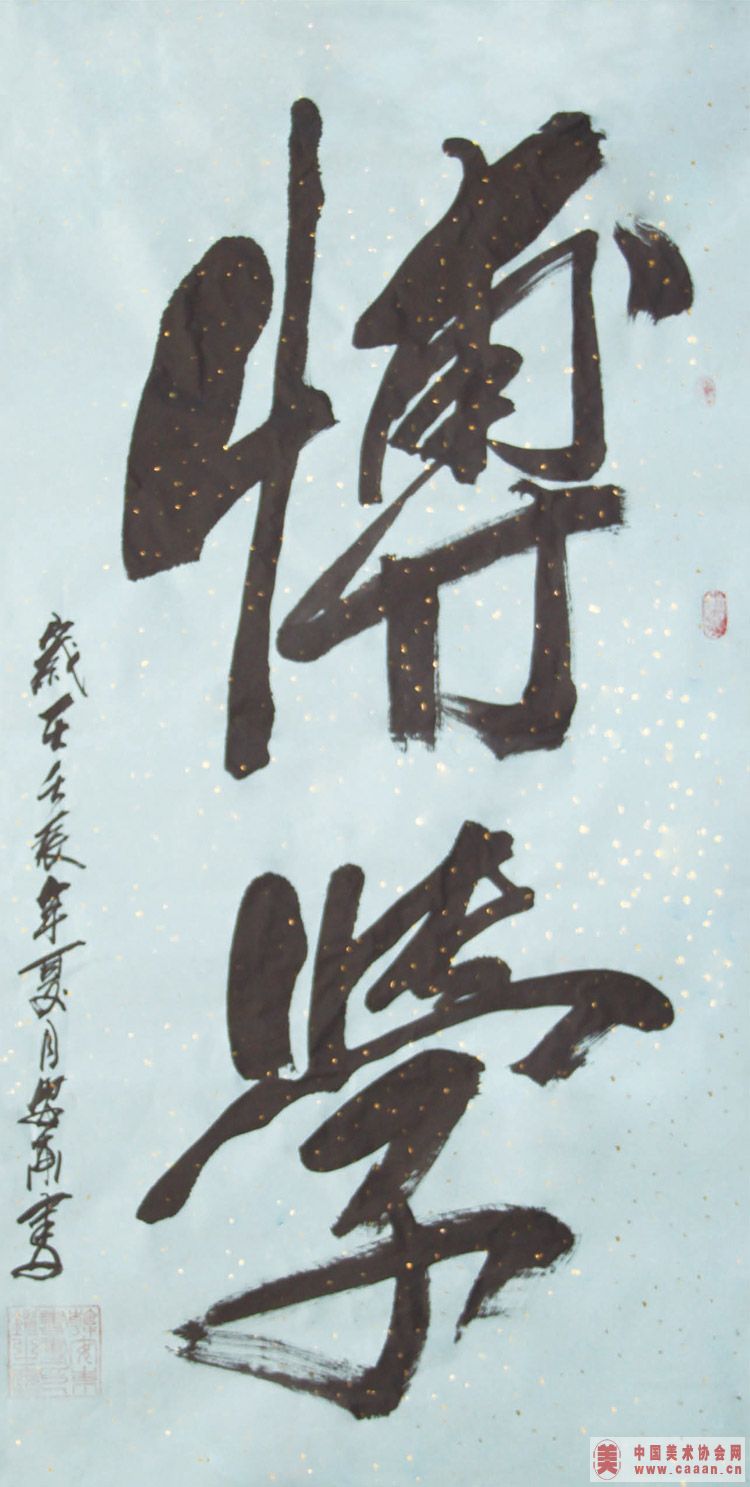 博学
歲在壬辰年夏月思南書
中国美术协会网
www.caaan.cn